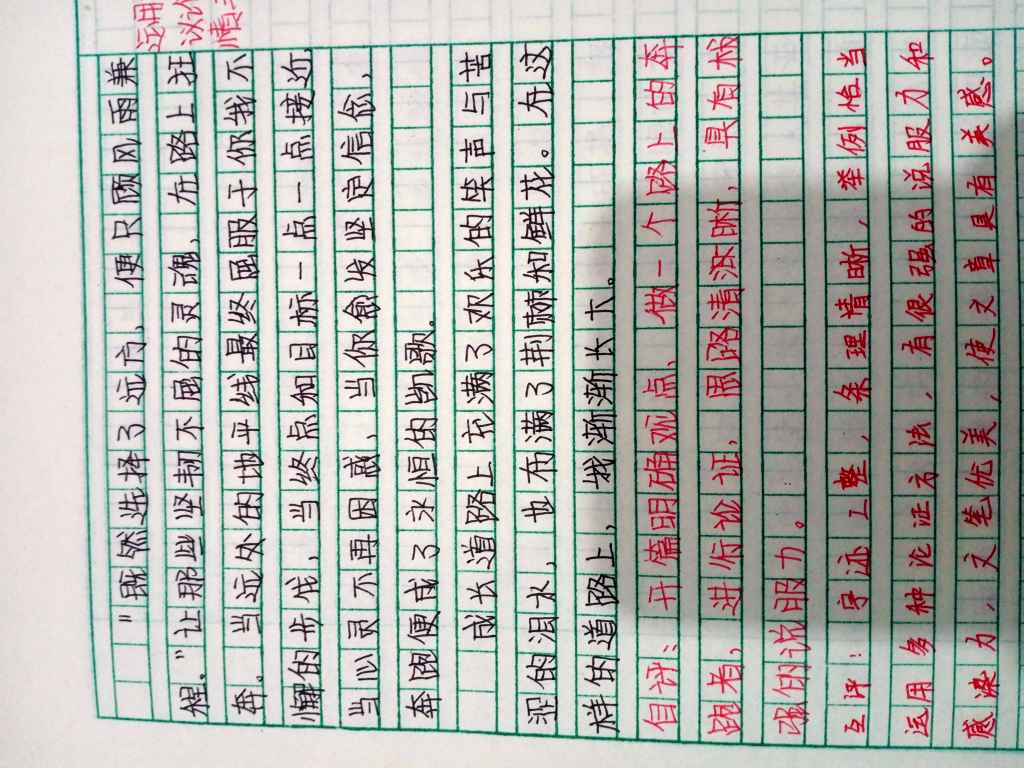 运用
议论
情
"既然选择了远方，便只顾风雨兼
程。"让那些坚韧不屈的灵魂，在路上狂
奔。当远处的地平线最终屈服于你我不
懈的步伐，当终点如目标一点一点接近，
当心灵不再困惑，当你愈发坚定信念，
奔跑便成了永恒的凯歌。
成长道路上充满了欢乐的笑声与苦
涩的泪水，也布满了荆棘和鲜花。在这
样的道路上，我渐渐长大。
自评：开篇明确观点，做一个路上的奔
跑者，进行论证，思路清淅晰，具有极
强的说服力。
互评：字迹工整，条理清晰，举例恰当
运用多种论证方法，有很强的说服力和
感染力，文笔优美，使文章具有美感。